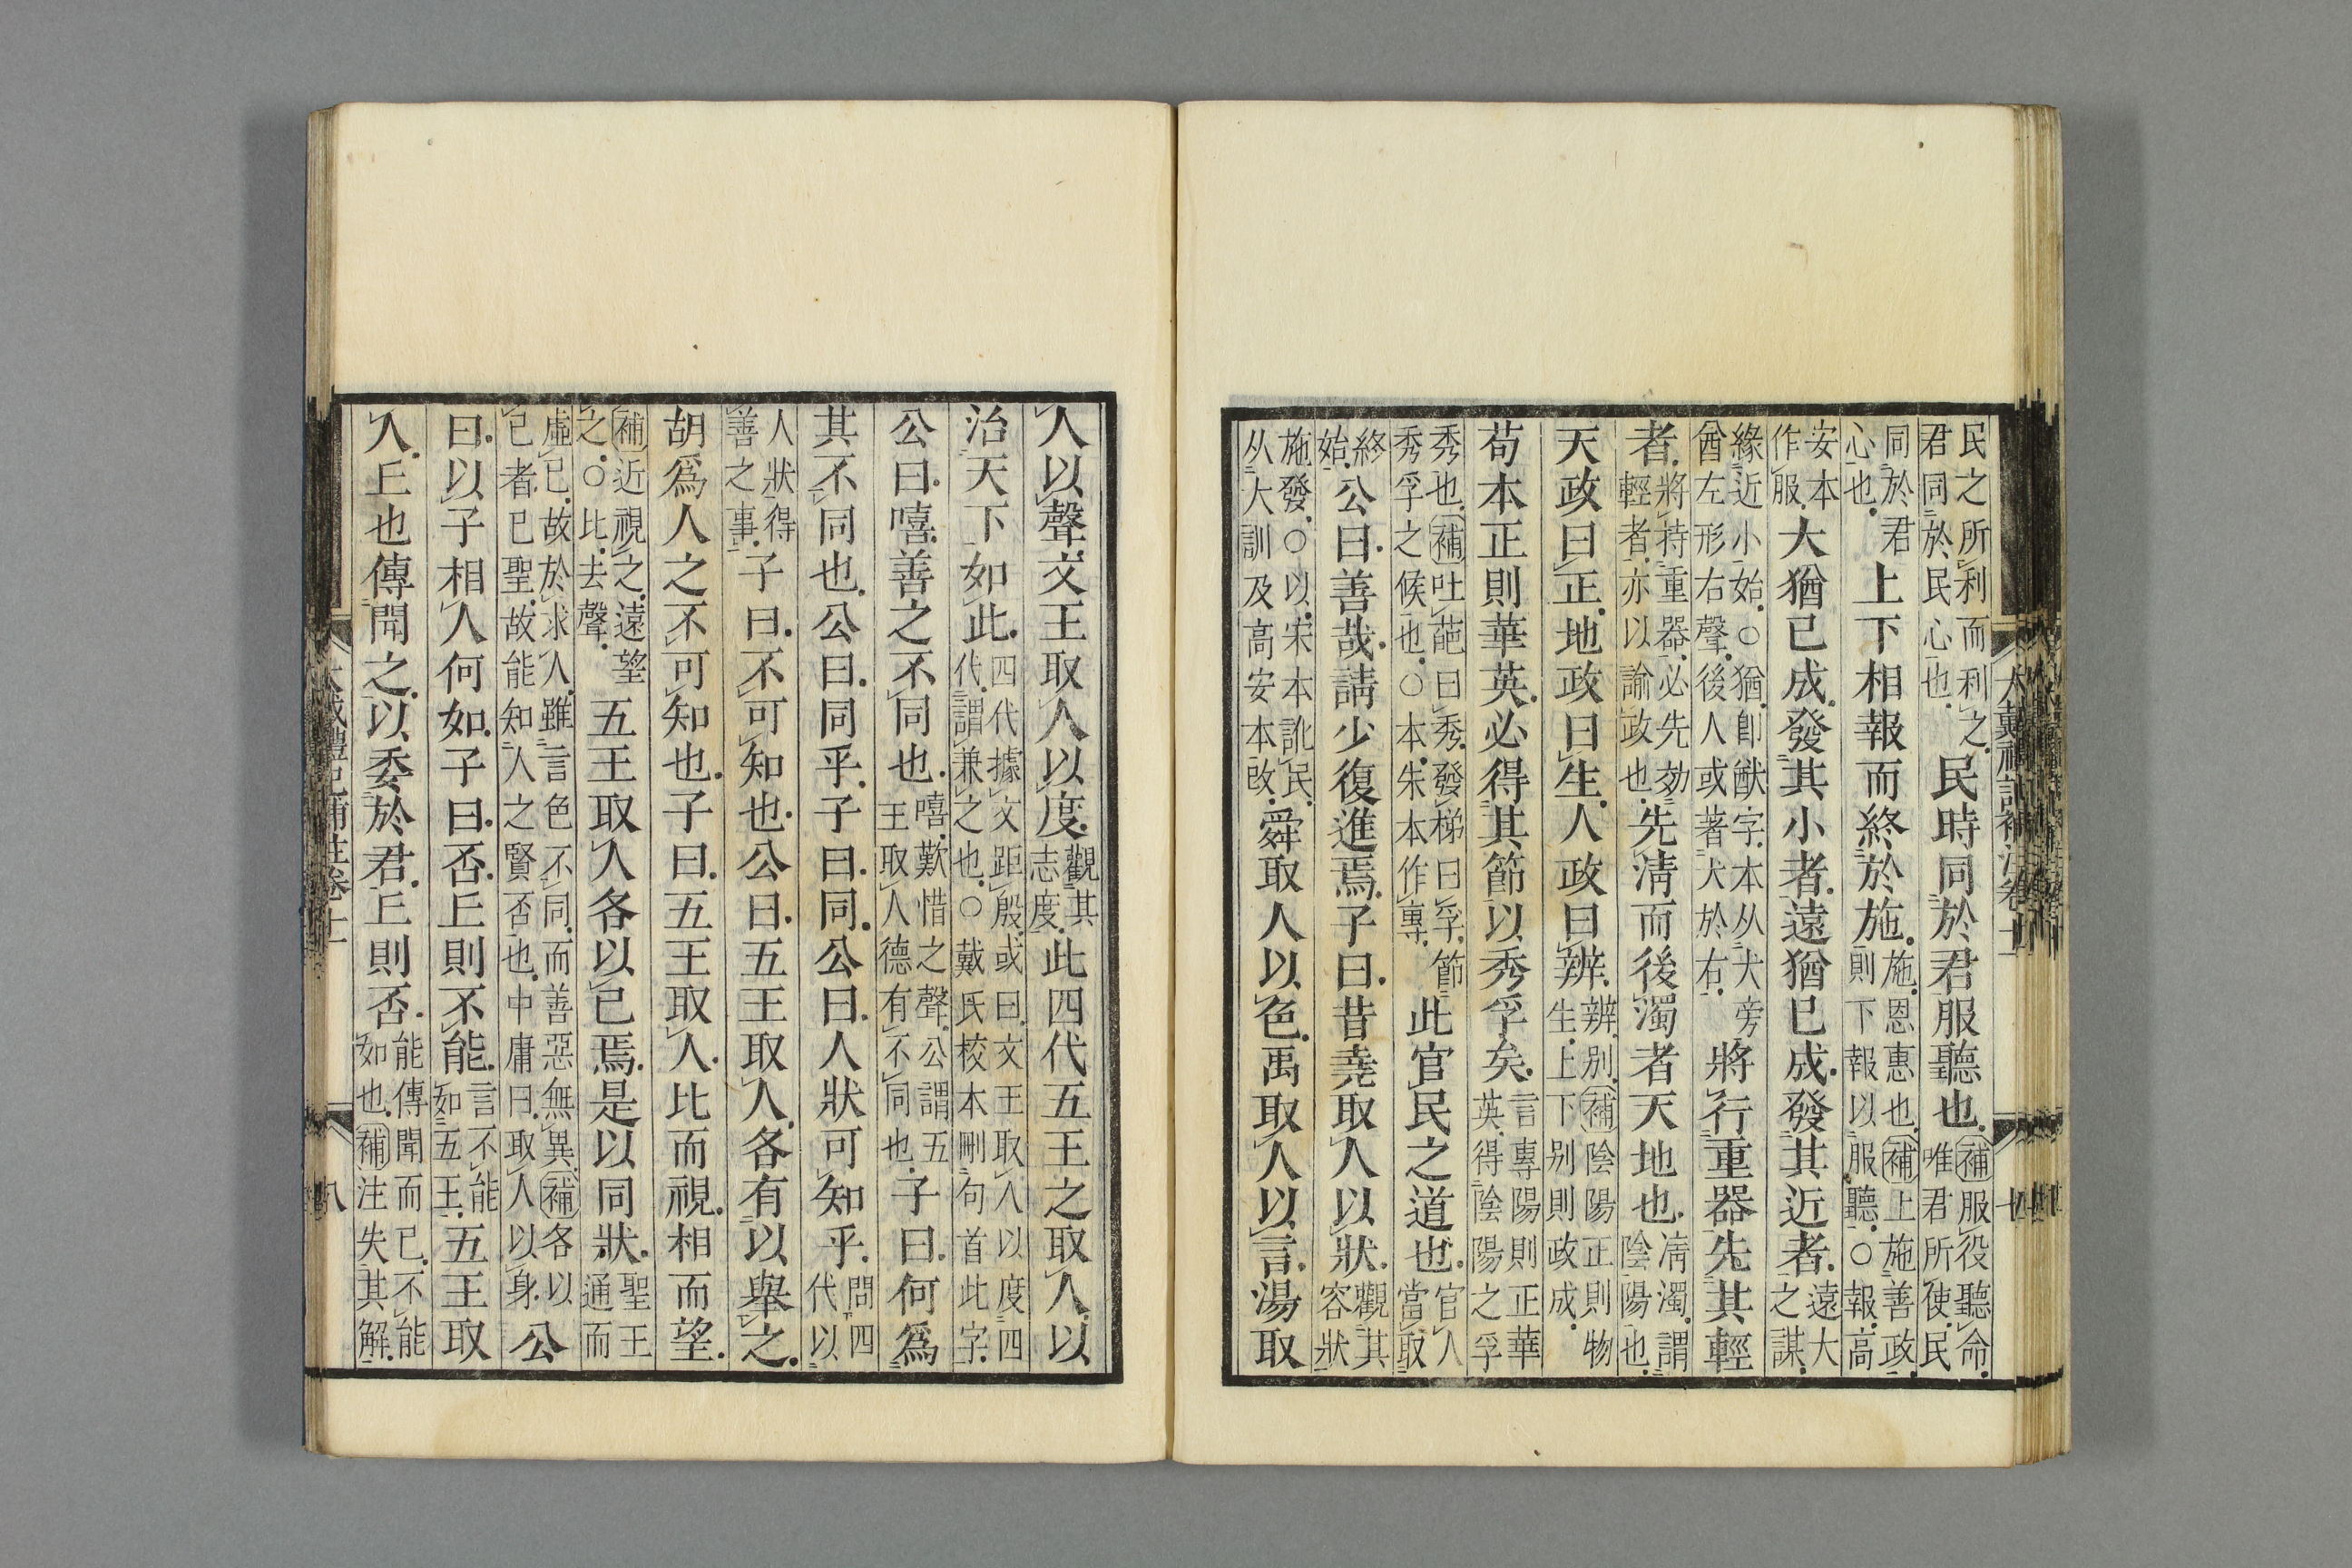 民之所利而利之君同於民心也民時同於君服聽也補服役聽命唯君所使民
同於君心也上下相報而終於施施恩惠也補上施善政則下報以服聽○報高
安本作服大猶已成發其小者遠猶已成發其近者遠大之謀
緣近小始○猶卽猷字本从犬旁酋左形右聲後人或著犬於右將行重器先其輕
者將持重器必先効輕者亦以諭政也先淸而後濁者天地也淸濁謂陰陽也
天政曰正地政曰生人政曰辨辨別補陰陽正則物生上下別則政成
苟本正則華英必得其節以秀孚矣言專陽則正華英得陰陽之孚
秀也補吐葩曰秀發梯曰孚節秀孚之候也○本朱本作專此官民之道也官人當取
終始公曰善哉請少復進焉子曰昔堯取人以狀觀其容狀
施發○以宋本訛民从大訓及高安本改舜取人以色禹取人以言湯取
大戴禮記補注卷十一
人以聲文王取人以度觀其志度此四代五王之取人以
治天下如此四代據文距殷或曰文王取人以度四代謂兼之也○戴氏校本刪句首此字
公曰嘻善之不同也嘻歎惜之聲公謂五王取人德有不同也子曰何爲
其不同也公曰同乎子曰同公曰人狀可知乎問四代以
人狀得善之事子曰不可知也公曰五王取人各有以舉之
胡爲人之不可知也子曰五王取人比而視相而望
補近視之遠望之○比去聲五王取人各以已焉是以同狀聖王通而
虛已故於求人雖言色不同而善惡無異補各以已者已聖故能知人之賢否也中庸曰取人以身公
曰以子相人何如子曰否丘則不能言不能如五王五王取
人丘也傳聞之以委於君丘則否能傳聞而已不能如也補注失其解
大戴禮記補注卷十一
八